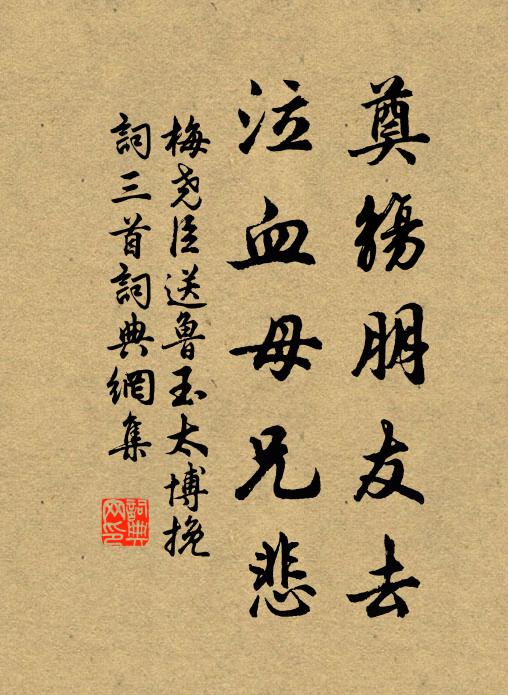 奠觴朋友去
泣血母兄悲
梅尧臣送魯玉太博挽
詞三首詞典網集
詞典网印